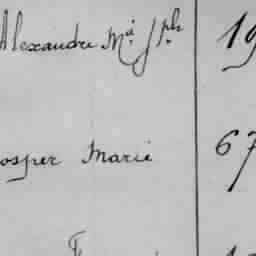 Alexandre Mie Jph 19
osper Marie 67